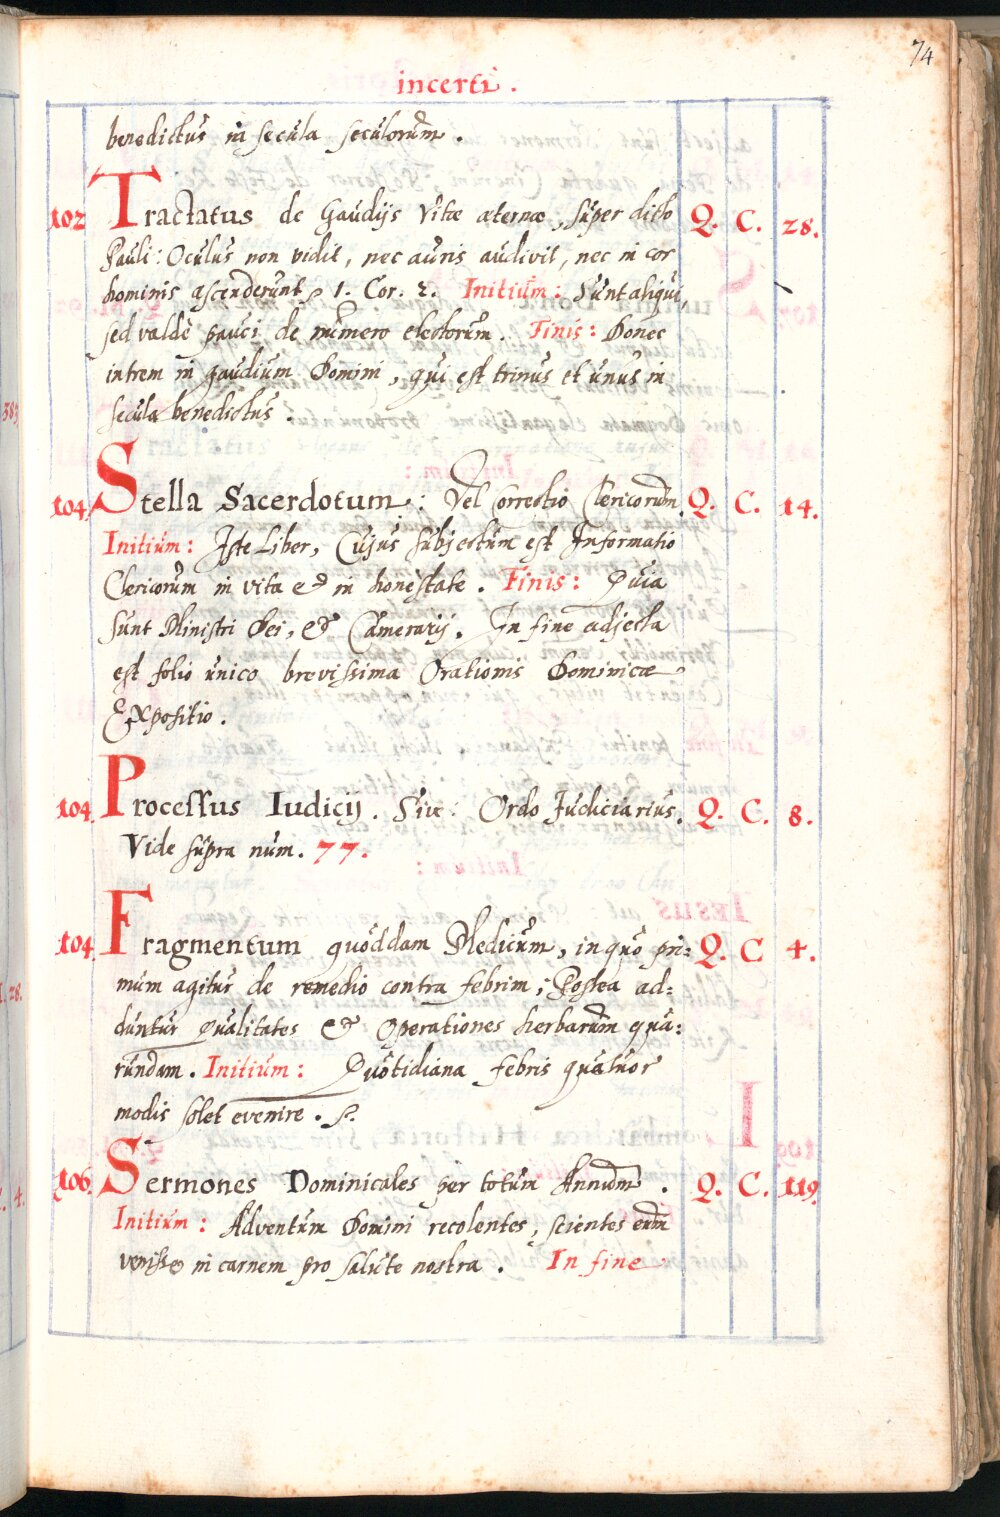 74
incerti.
benedictus in secula seculorum.
102 Tractatus de Gaudijs Vitæ æternæ, super dicto Q. C. 28.
Pauli: Oculus non vidit, nec auris audivit, nec in cor
hominis ascenderunt 1. Cor. 2. Initium: Sunt aliqui
sed valdè pauci de numero electorum. Finis: Donec
intrem in gaudium Domini, qui est trinus et unus in
secula benedictus.
104 Stella Sacerdotum: Vel Correctio Clericorum. Q. C. 14.
Initium: Iste Liber, Cujus subjectum est Informatio
Clericorum in vita et in honestate. Finis: Quia
sunt Ministri Dei, et Camerarij. In fine adjecta
est folio unico brevissima Orationis Dominicæ
Expositio.
104. Processus Iudicij. Sive: Ordo Judiciarius. Q. C. 8.
Vide supra num. 77.
104. Fragmentum quoddam Medicum, in quo pri= Q. C 4.
mum agitur de remedio contra febrim; Postea ad=
duntur Qualitates et Operationes herbarum qua=
rundam. Initium: Quotidiana febris quatuor
modis solet evenire.
106. Sermones Dominicales per totum Annum. Q. C. 119.
Initium: Adventum Domini recolentes, scientes eum
venisse in carnem pro salute nostra. In fine